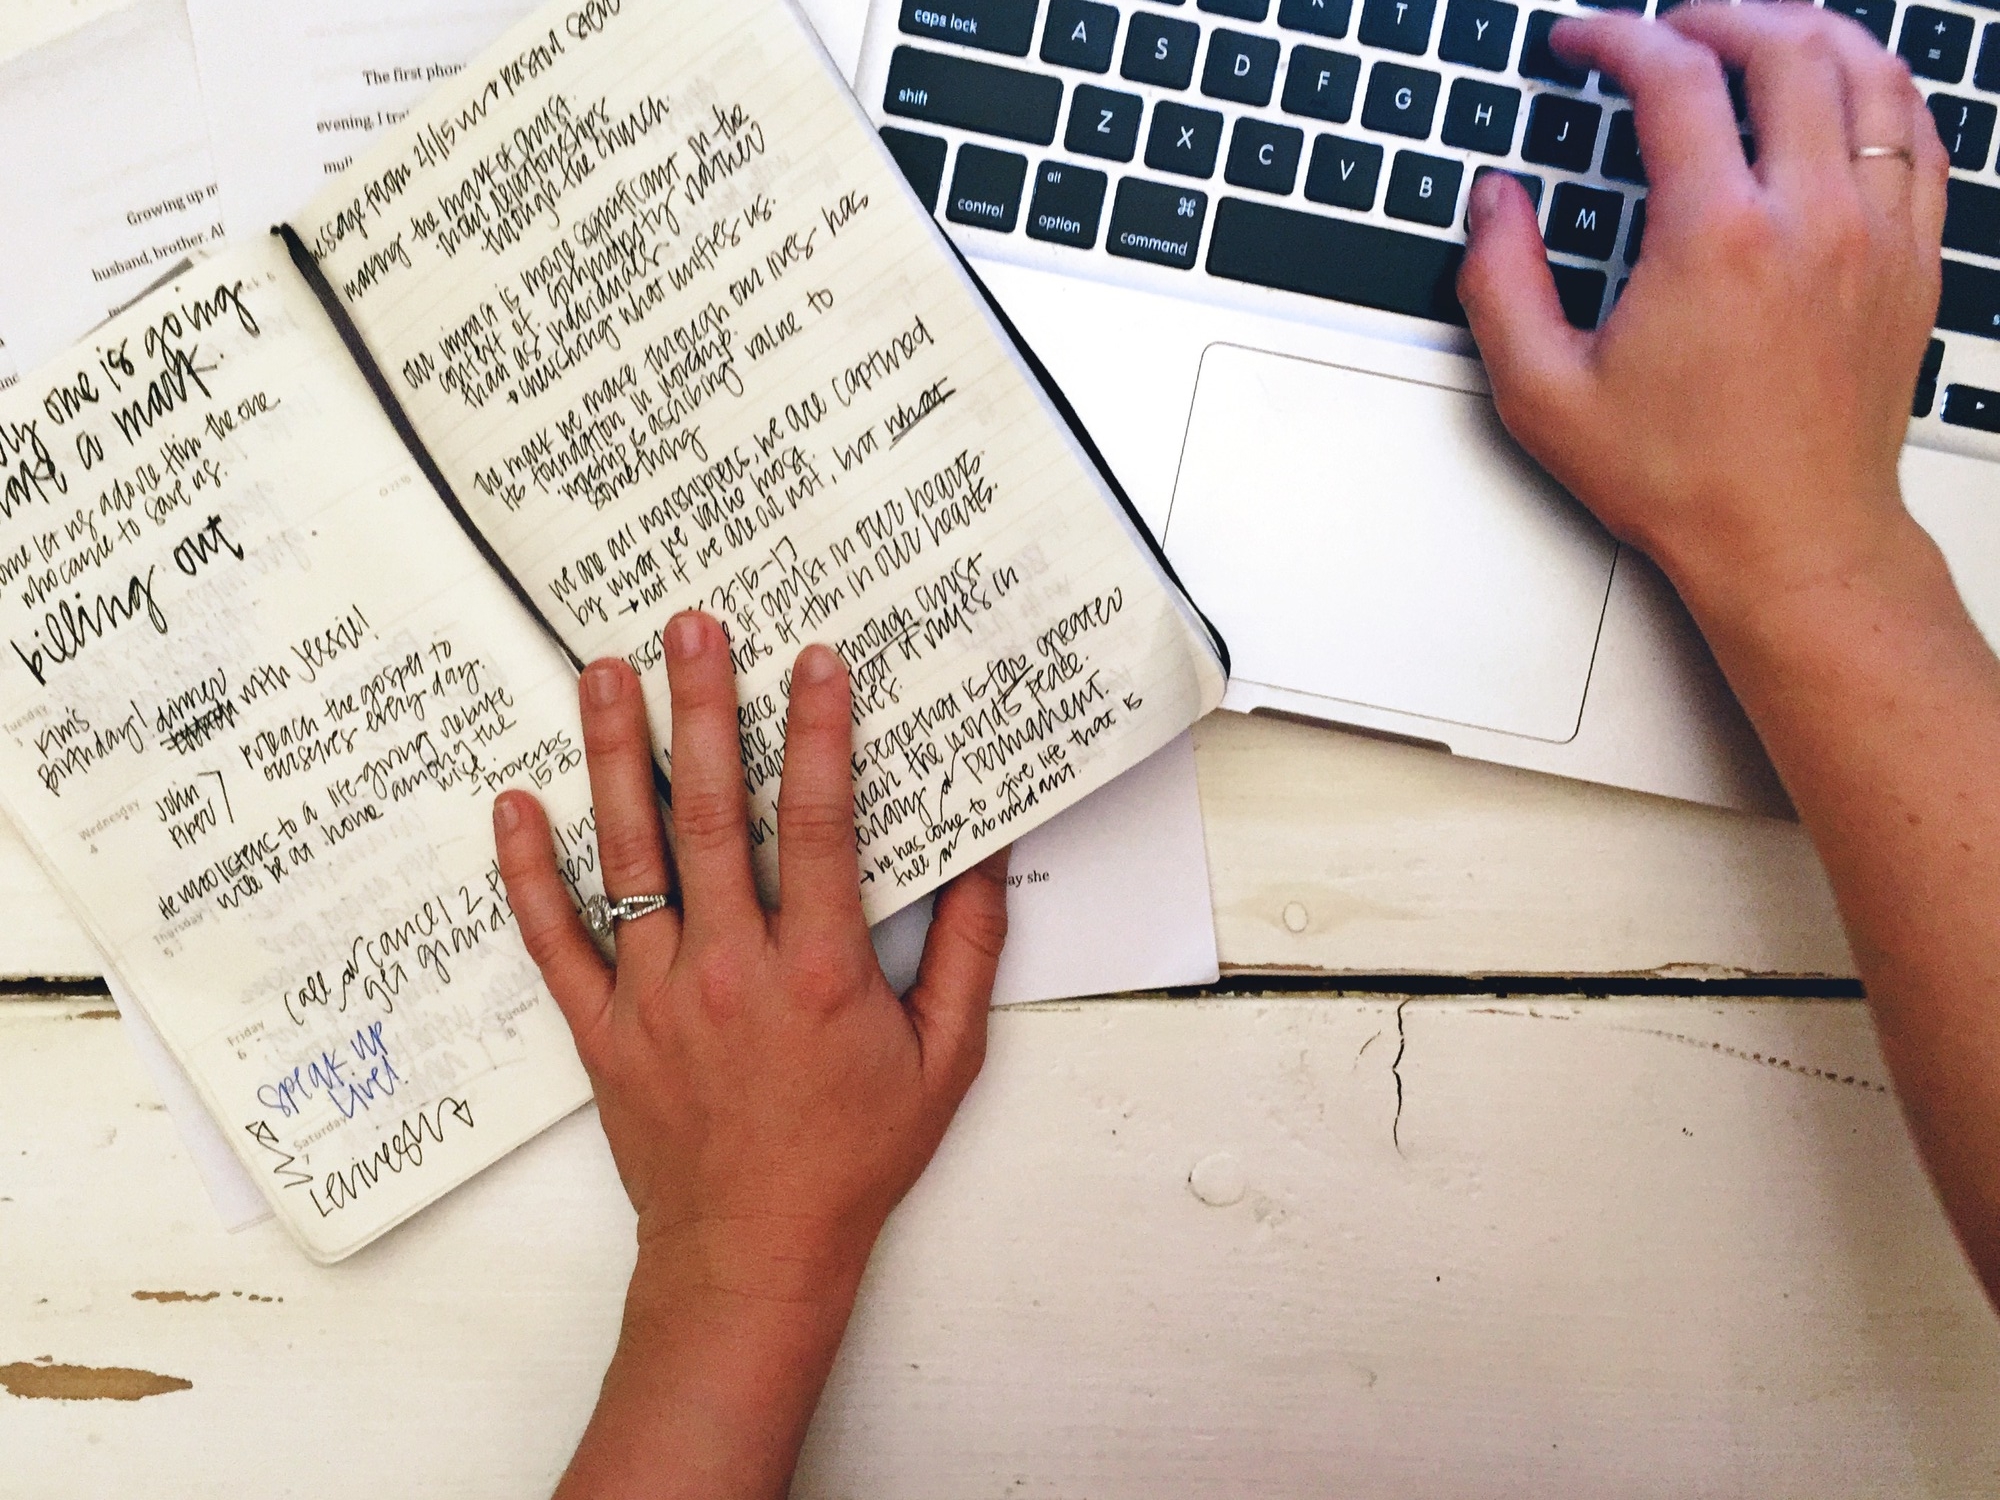 The first phon
evening, I tra
mull
Growing up m
husband, brother. Al
ay she
ly one is going
make a mark.
ome let us adore Him the one
who came to save us.
billing out
Tuesday
3
Kim's
birthday! dinner
with Jessie!
John
Piper]
Preach the gospel to
ourselves every day.
Wednesday
4
He who listens to a life-giving rebuke
will be at home among the
wise.
-Proverbs
15:30
Thursday
5
call or cancel 2 line
get grand
Friday
6
Sunday
8
speak up
live!
Saturday
7
message from 2/1/15 w/ pastor steve
making the mark of Christ
in our relationships
through the church.
our impact is more significant in the
context of community rather
than as individuals
→ cherishing what unifies us.
the mark we make through our lives has
its foundation in worship.
worship is ascribing value to
something
we are all worshippers, we are captured
by what we value most.
→ not if we are or not, but what
3:15-17
of Christ in our hearts.
of Him in our hearts.
through Christ
that rules in
lives.
is peace that is far greater
than the world's peace.
or permanent.
→ he has come to give life that is
free or abundant.
caps lock
A
S
D
F
G
H
J
T
Y
shift
Z
X
C
V
B
M
control
alt
option
⌘
command
+
=
}
]